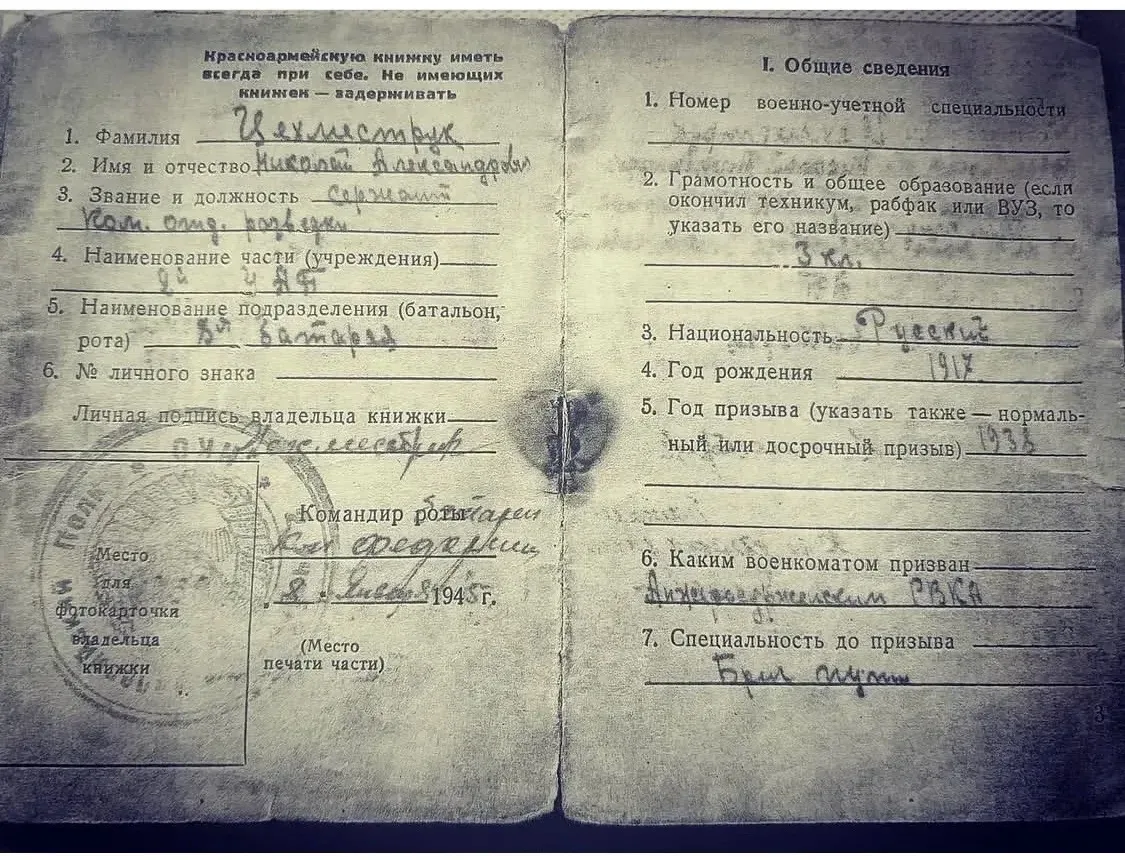 Красноармейскую книжку иметь
всегда при себе. Не имеющих
книжек — задерживать
1. Фамилия Цехместрук
2. Имя и отчество Николай Александров
3. Звание и должность сержант
Ком. отд. разведки
4. Наименование части (учреждения)
УАП
5. Наименование подразделения (батальон,
рота) 8я батарея
6. № личного знака
Личная подпись владельца книжки
Командир роты батареи
8 Января 1945 г.
Место
для
фотокарточки
владельца
книжки
(Место
печати части)
I. Общие сведения
1. Номер военно-учетной специальности
2. Грамотность и общее образование (если
окончил техникум, рабфак или ВУЗ, то
указать его название)
3 кл.
3. Национальность Русский
4. Год рождения 1917
5. Год призыва (указать также — нормаль-
ный или досрочный призыв) 1938
6. Каким военкоматом призван
РВКА
7. Специальность до призыва
Бриг пути
3